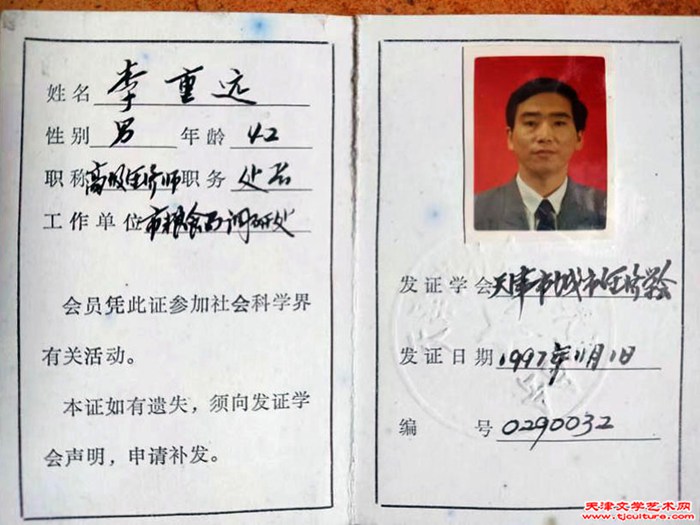 姓名 李重远
性别 男 年龄 42
职称 高级经济师 职务 处长
工作单位 市粮食局调研处
会员凭此证参加社会科学界
有关活动。
本证如有遗失，须向发证学
会声明，申请补发。
发证学会 天津市城市经济学会
发证日期 1997年11月1日
编号 0290032
天津文学艺术网
www.tjculture.com